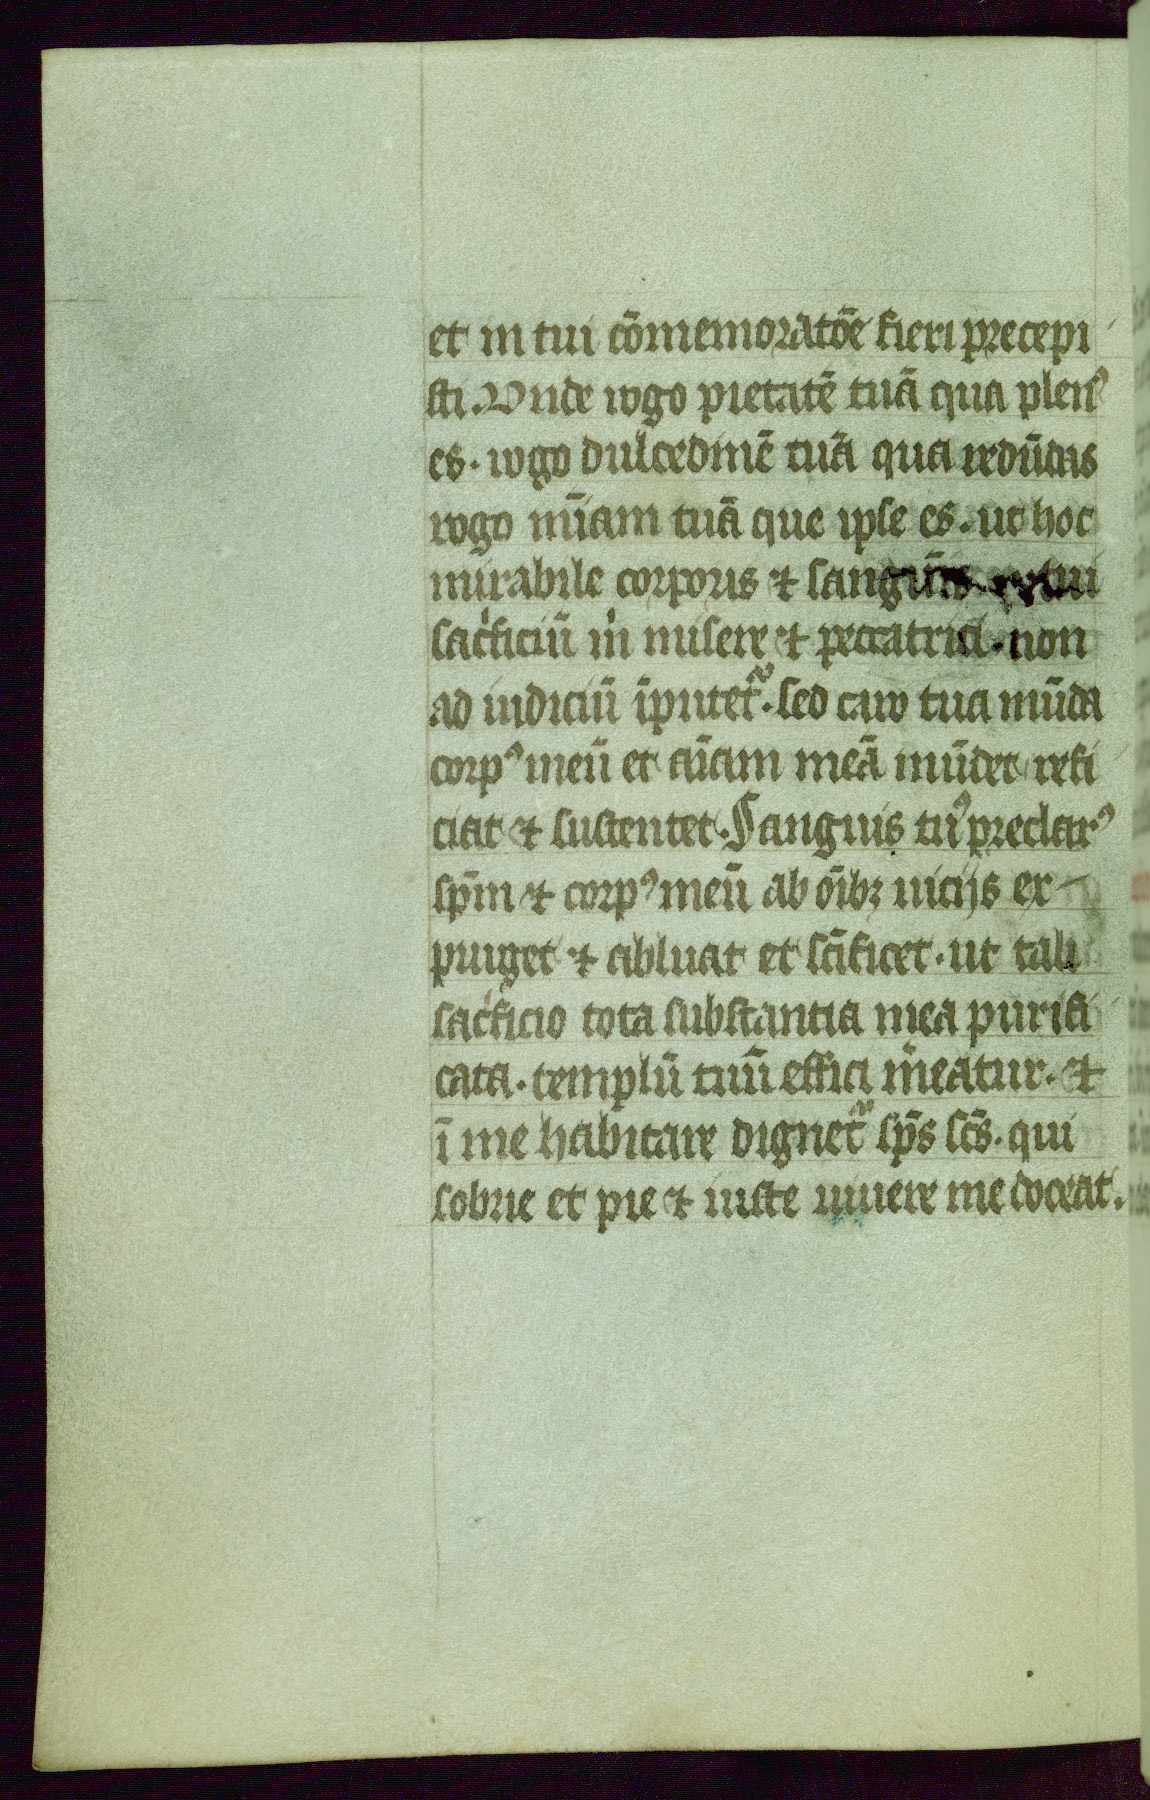 et in tui cōmemoratōe fieri precepi
sti. Unde rogo pietatē tuā qua plenꝰ
es. rogo dulcedinē tuā qua redūdas
rogo mīam tuā que ipse es. ut hoc
mirabile corporis ⁊ sanguīs tui
sacͥficiū mͥ misere ⁊ peccatrici. non
ad iudiciū īputetͬ. sed caro tua mūda
corpꝰ meū et aīam meā mūdet refi
ciat ⁊ sustentet. Sanguis tuꝰ preclarꝰ
sp̄m ⁊ corpꝰ meū ab oībꝫ uicijs ex
purget ⁊ abluat et scīficet. ut tali
sacͥficio tota substantia mea purifi
cata. templū tuū effici m̄eatur. ⁊
ī me habitare dignetͬ sp̄s sc̄s. qui
sobrie et pie ⁊ iuste uiuere me doceat.